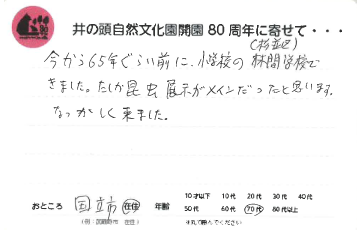 井の頭自然文化園開園 80 周年に寄せて・・・
(杉並区)
今から65年ぐらい前に、小学校の林間学校で
きました。たしか昆虫展示がメインだったと思います。
なつかしく来ました。
おところ 国立市 在住 年齢 10才以下 10代 20代 30代 40代
50代 60代 70代 80代以上
(例:武蔵野市 在住) ※丸で囲んでください